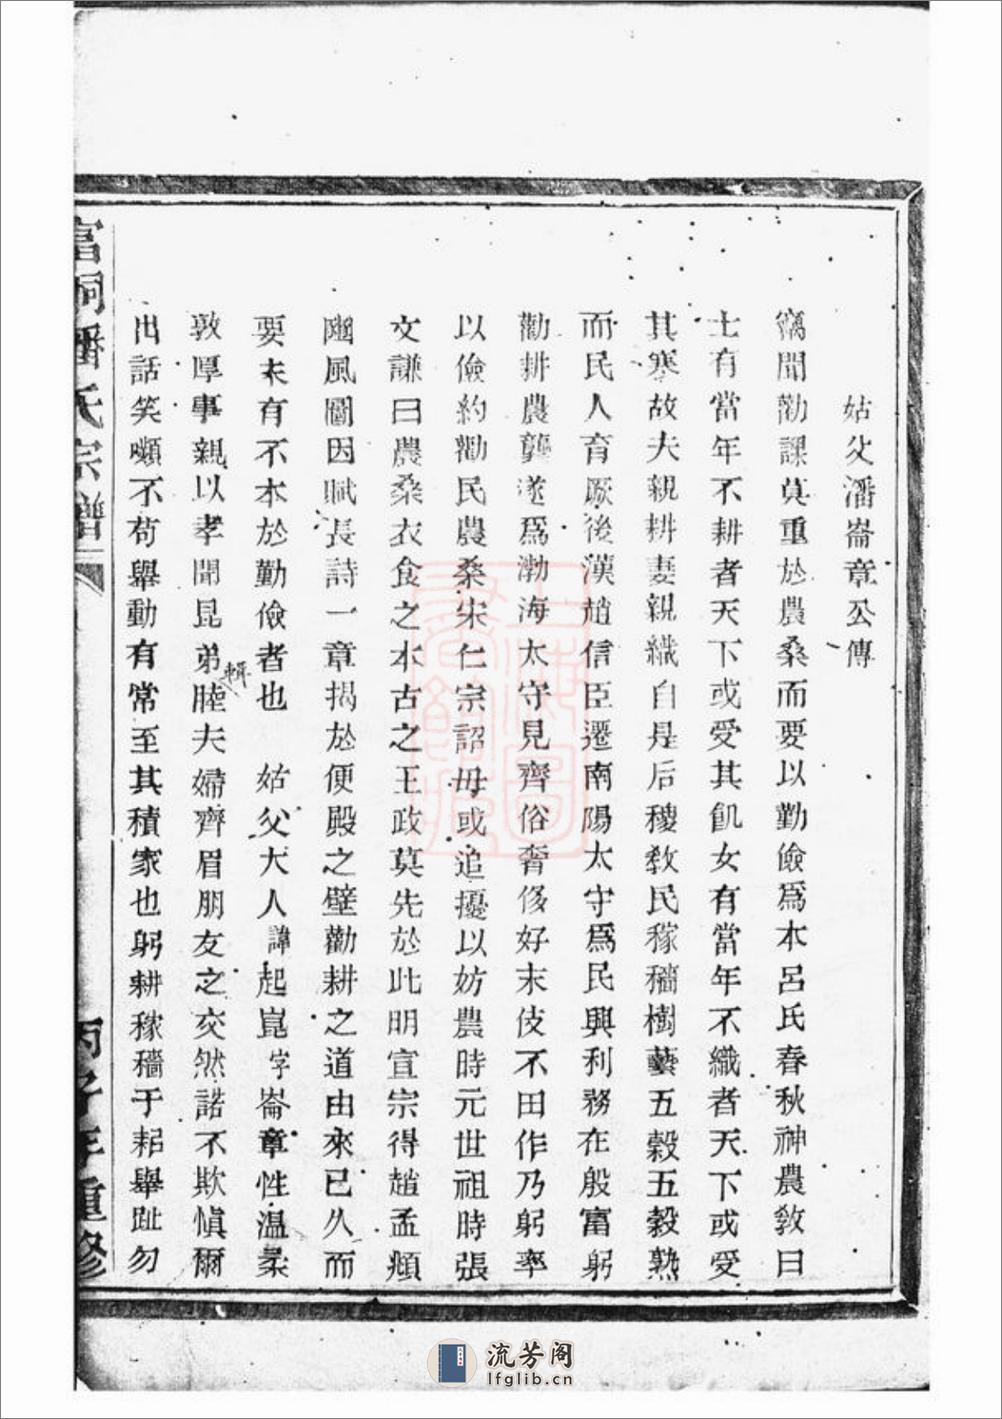 姑父潘崙章公傳
竊聞勸課莫重於農桑而要以勤儉爲本呂氏春秋神農敎曰
士有當年不耕者天下或受其飢女有當年不織者天下或受
其寒故夫親耕妻親織自是后稷敎民稼穡樹藝五穀五穀熟
而民人育厥後漢趙信臣遷南陽太守爲民興利務在殷富躬
勸耕農龔遂爲渤海太守見齊俗奢侈好末伎不田作乃躬率
以儉約勸民農桑宋仁宗詔毋或追擾以妨農時元世祖時張
文謙曰農桑衣食之本古之王政莫先於此明宣宗得趙孟頫
豳風圖因賦長詩一章揭於便殿之壁勸耕之道由來已久而
要未有不本於勤儉者也 姑父大人諱起崑字崙章性温柔
敦厚事親以孝聞昆弟輯睦夫婦齊眉朋友之交然諾不欺愼爾
出話笑嚬不苟舉動有常至其積家也躬耕稼穡于耜舉趾勿
富桐潘氏宗譜
丙子年重修
流芳阁
lfglib.cn